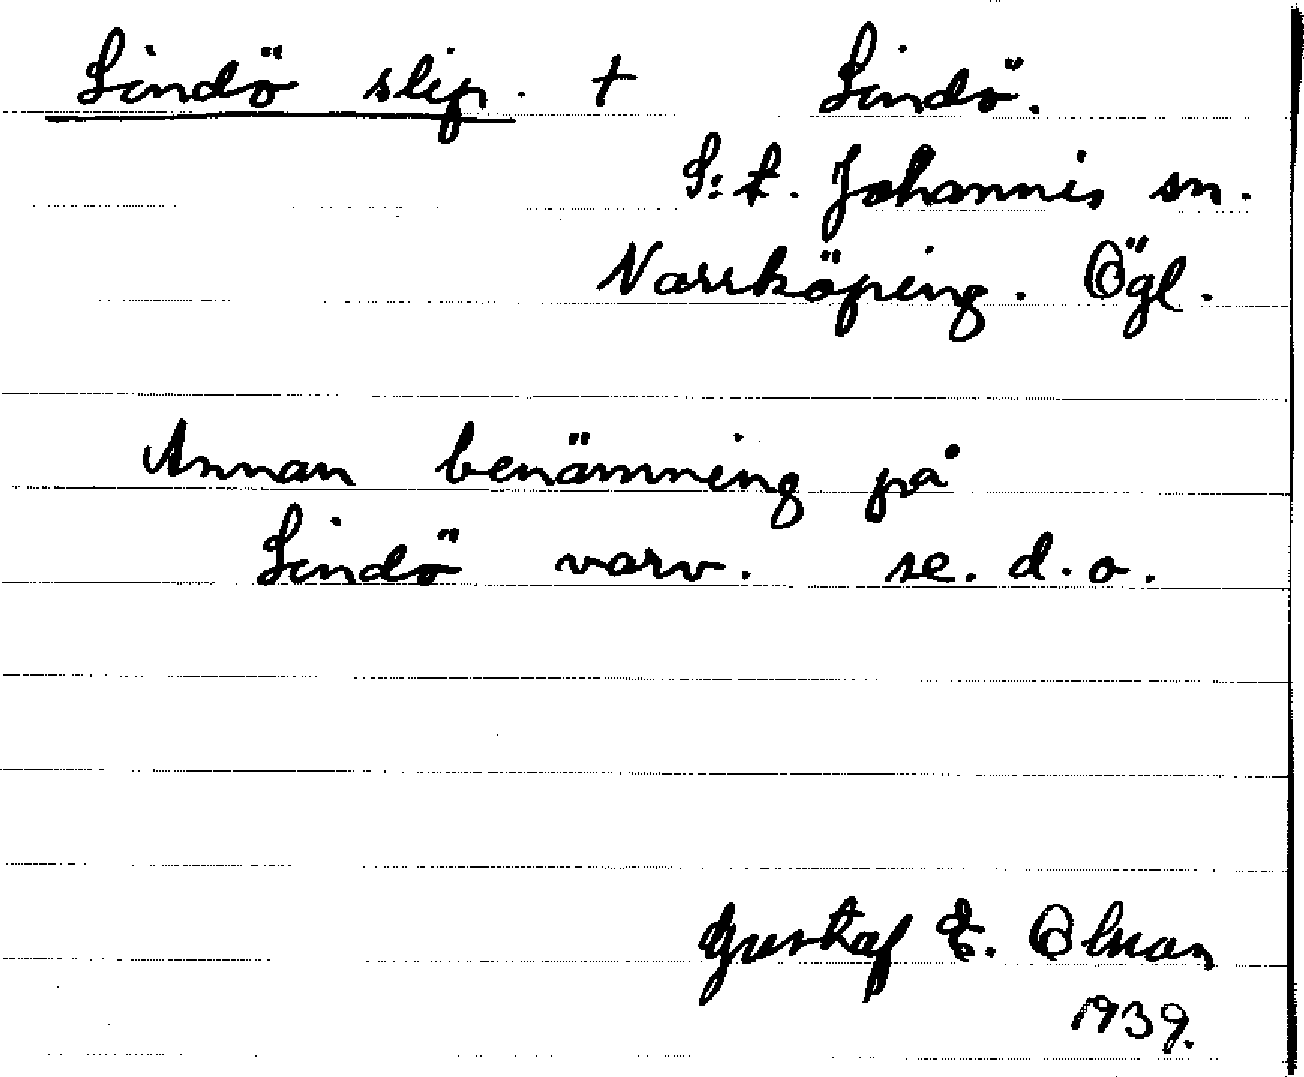 Lindö slip. + Lindö.
S:t. Johannis sn.
Norrköping. Ögl.
Annan benämning på
Lindö varv. se. d. o.
Gustaf E. Olson
1939.